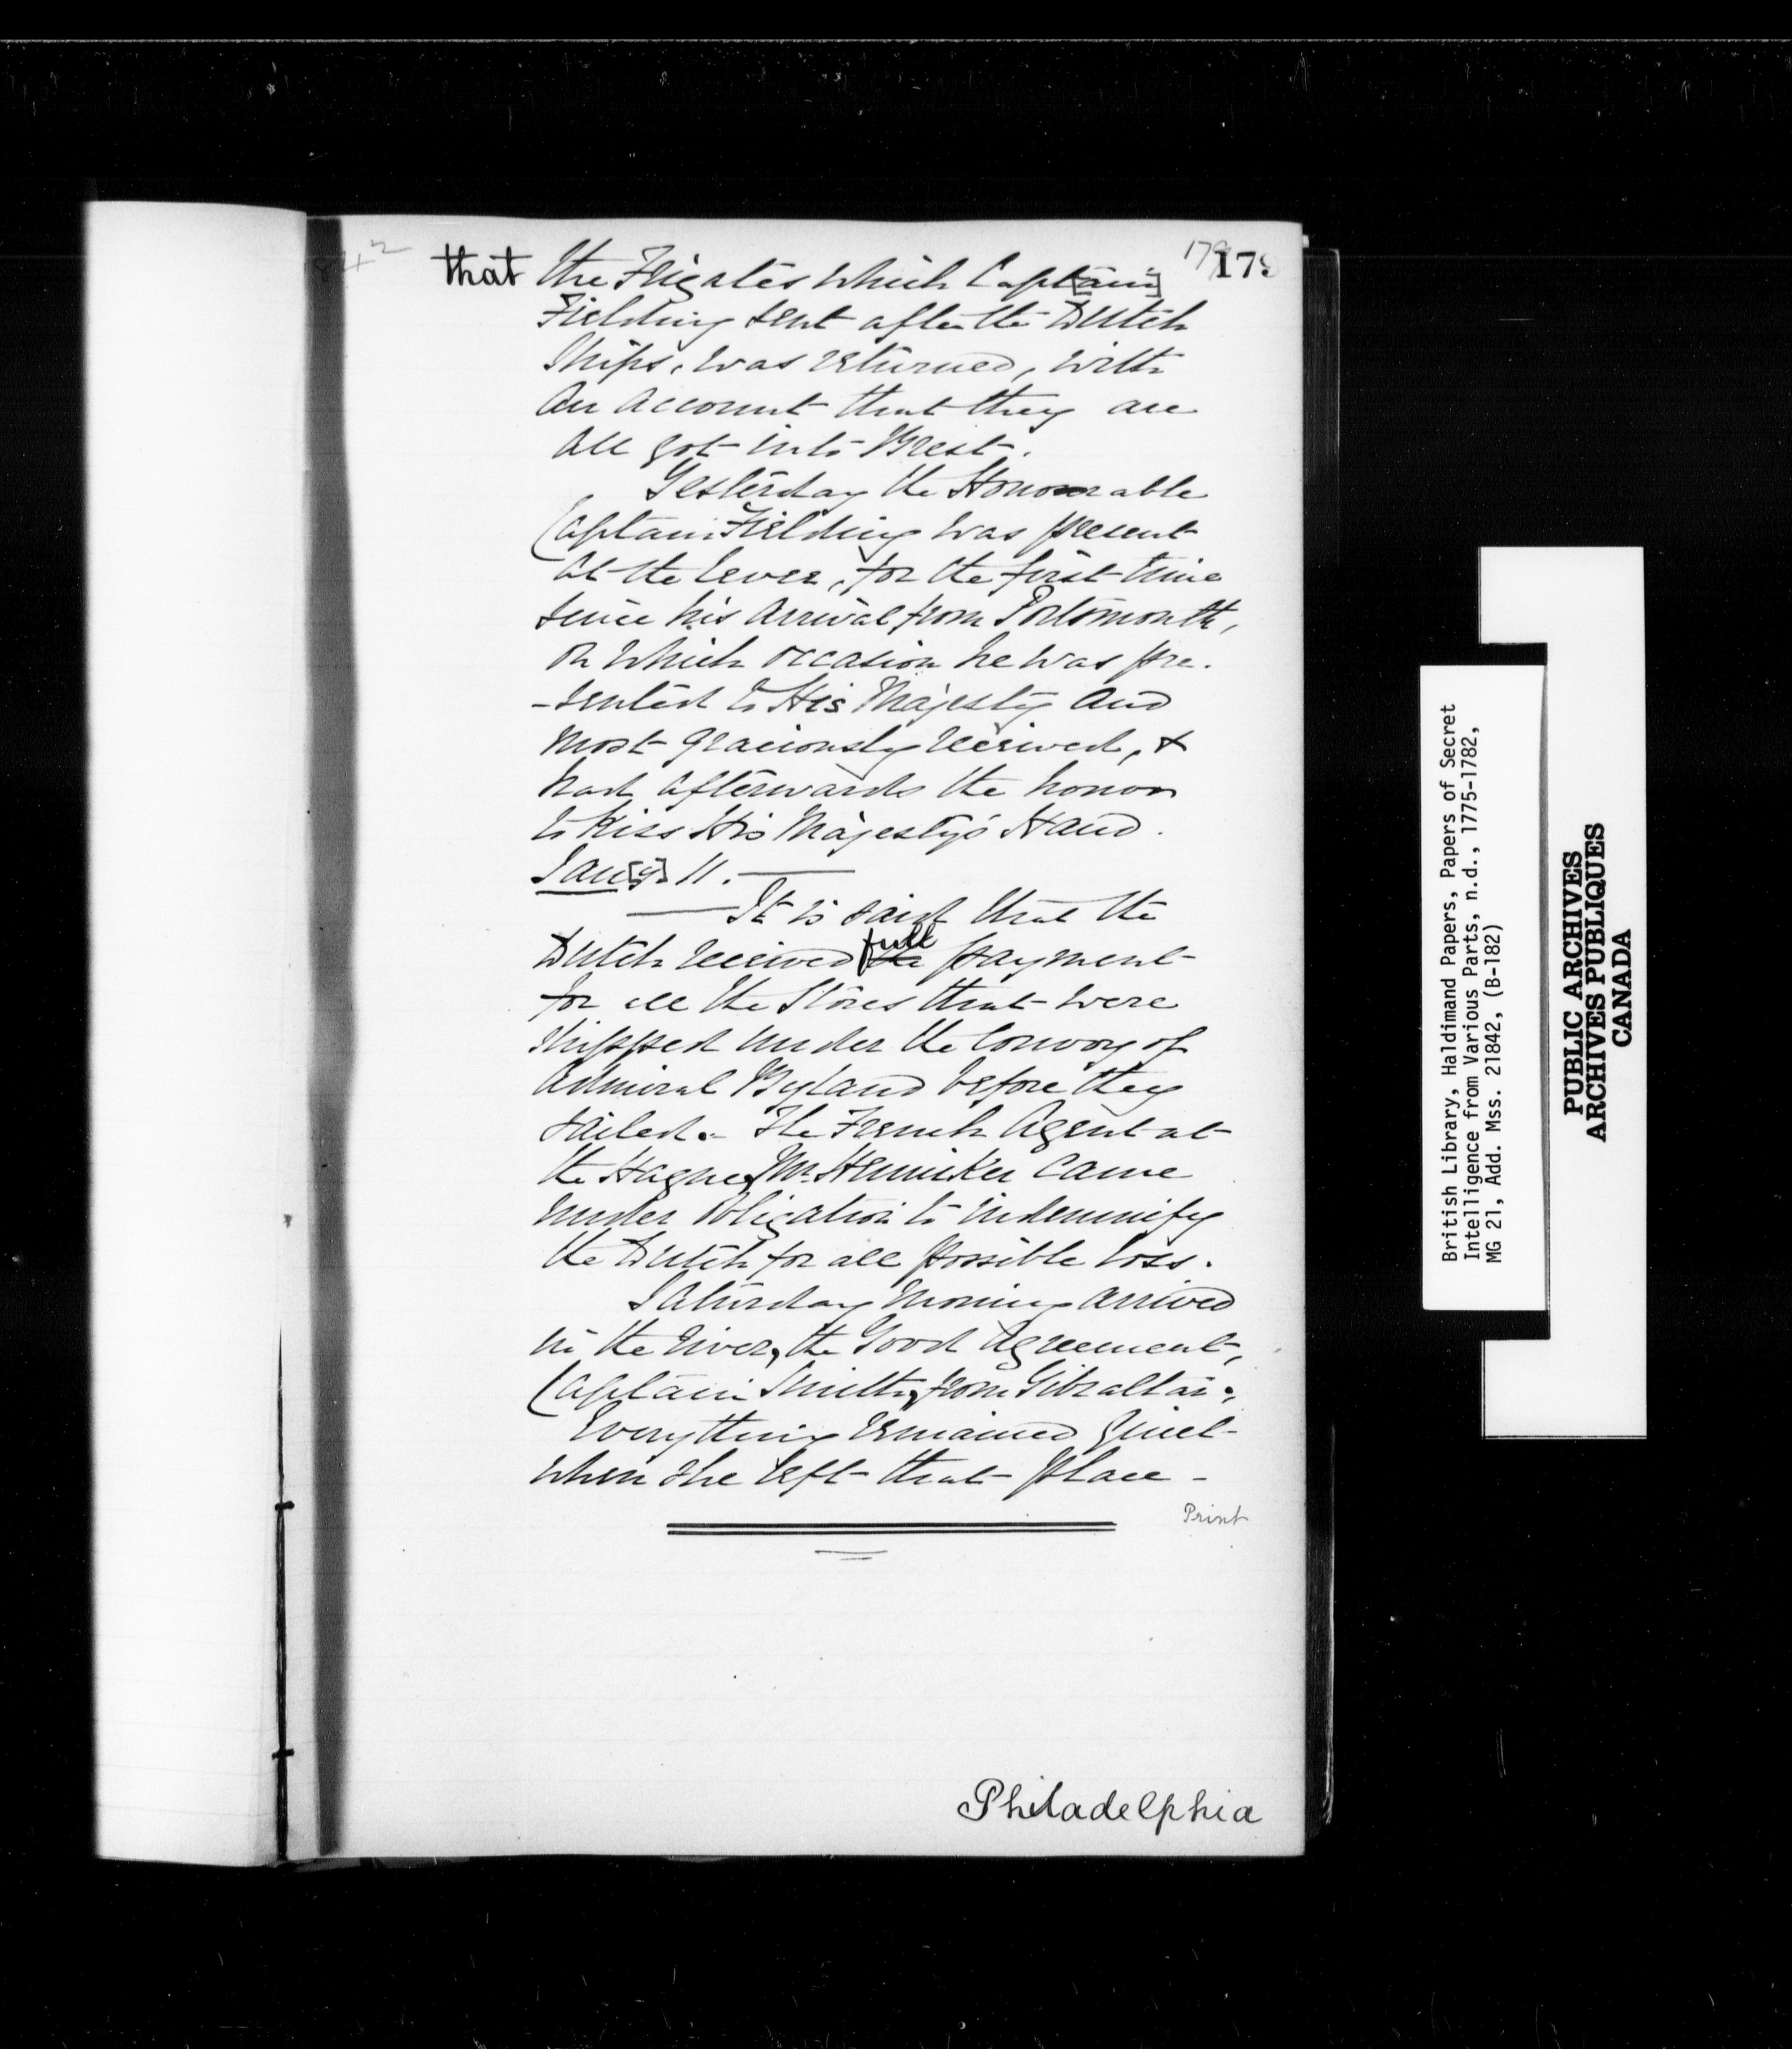 that the Frigates which Capt[ain]
179
Fielding sent after the Dutch
Ships, was returned, with
an account that they are
all got into Brest.
Yesterday the Honorable
Captain Fielding was present
at the levee, for the first time
since his arrival from Portsmouth,
on which occasion he was pre-
-sented to His Majesty and
most graciously received, &
had afterwards the honor
to Kiss His Majesty's Hand.
Jan[y] 11.
It is said that the
Dutch received full the payment
for all the Stores that were
shipped under the Convoy of
Admiral Byland before they
sailed. - The French Agent at
the Hague, Mr. Henniker came
under Obligation to indemnify
the Dutch for all possible loss.
Saturday morning arrived
in the river, the Good Agreement,
Captain Smith, from Gibraltar;
Everything remained quiet
when she left that place -
Print
Philadelphia
British Library, Haldimand Papers, Papers of Secret
Intelligence from Various Parts, n.d., 1775-1782,
MG 21, Add. Mss. 21842, (B-182)
PUBLIC ARCHIVES
ARCHIVES PUBLIQUES
CANADA